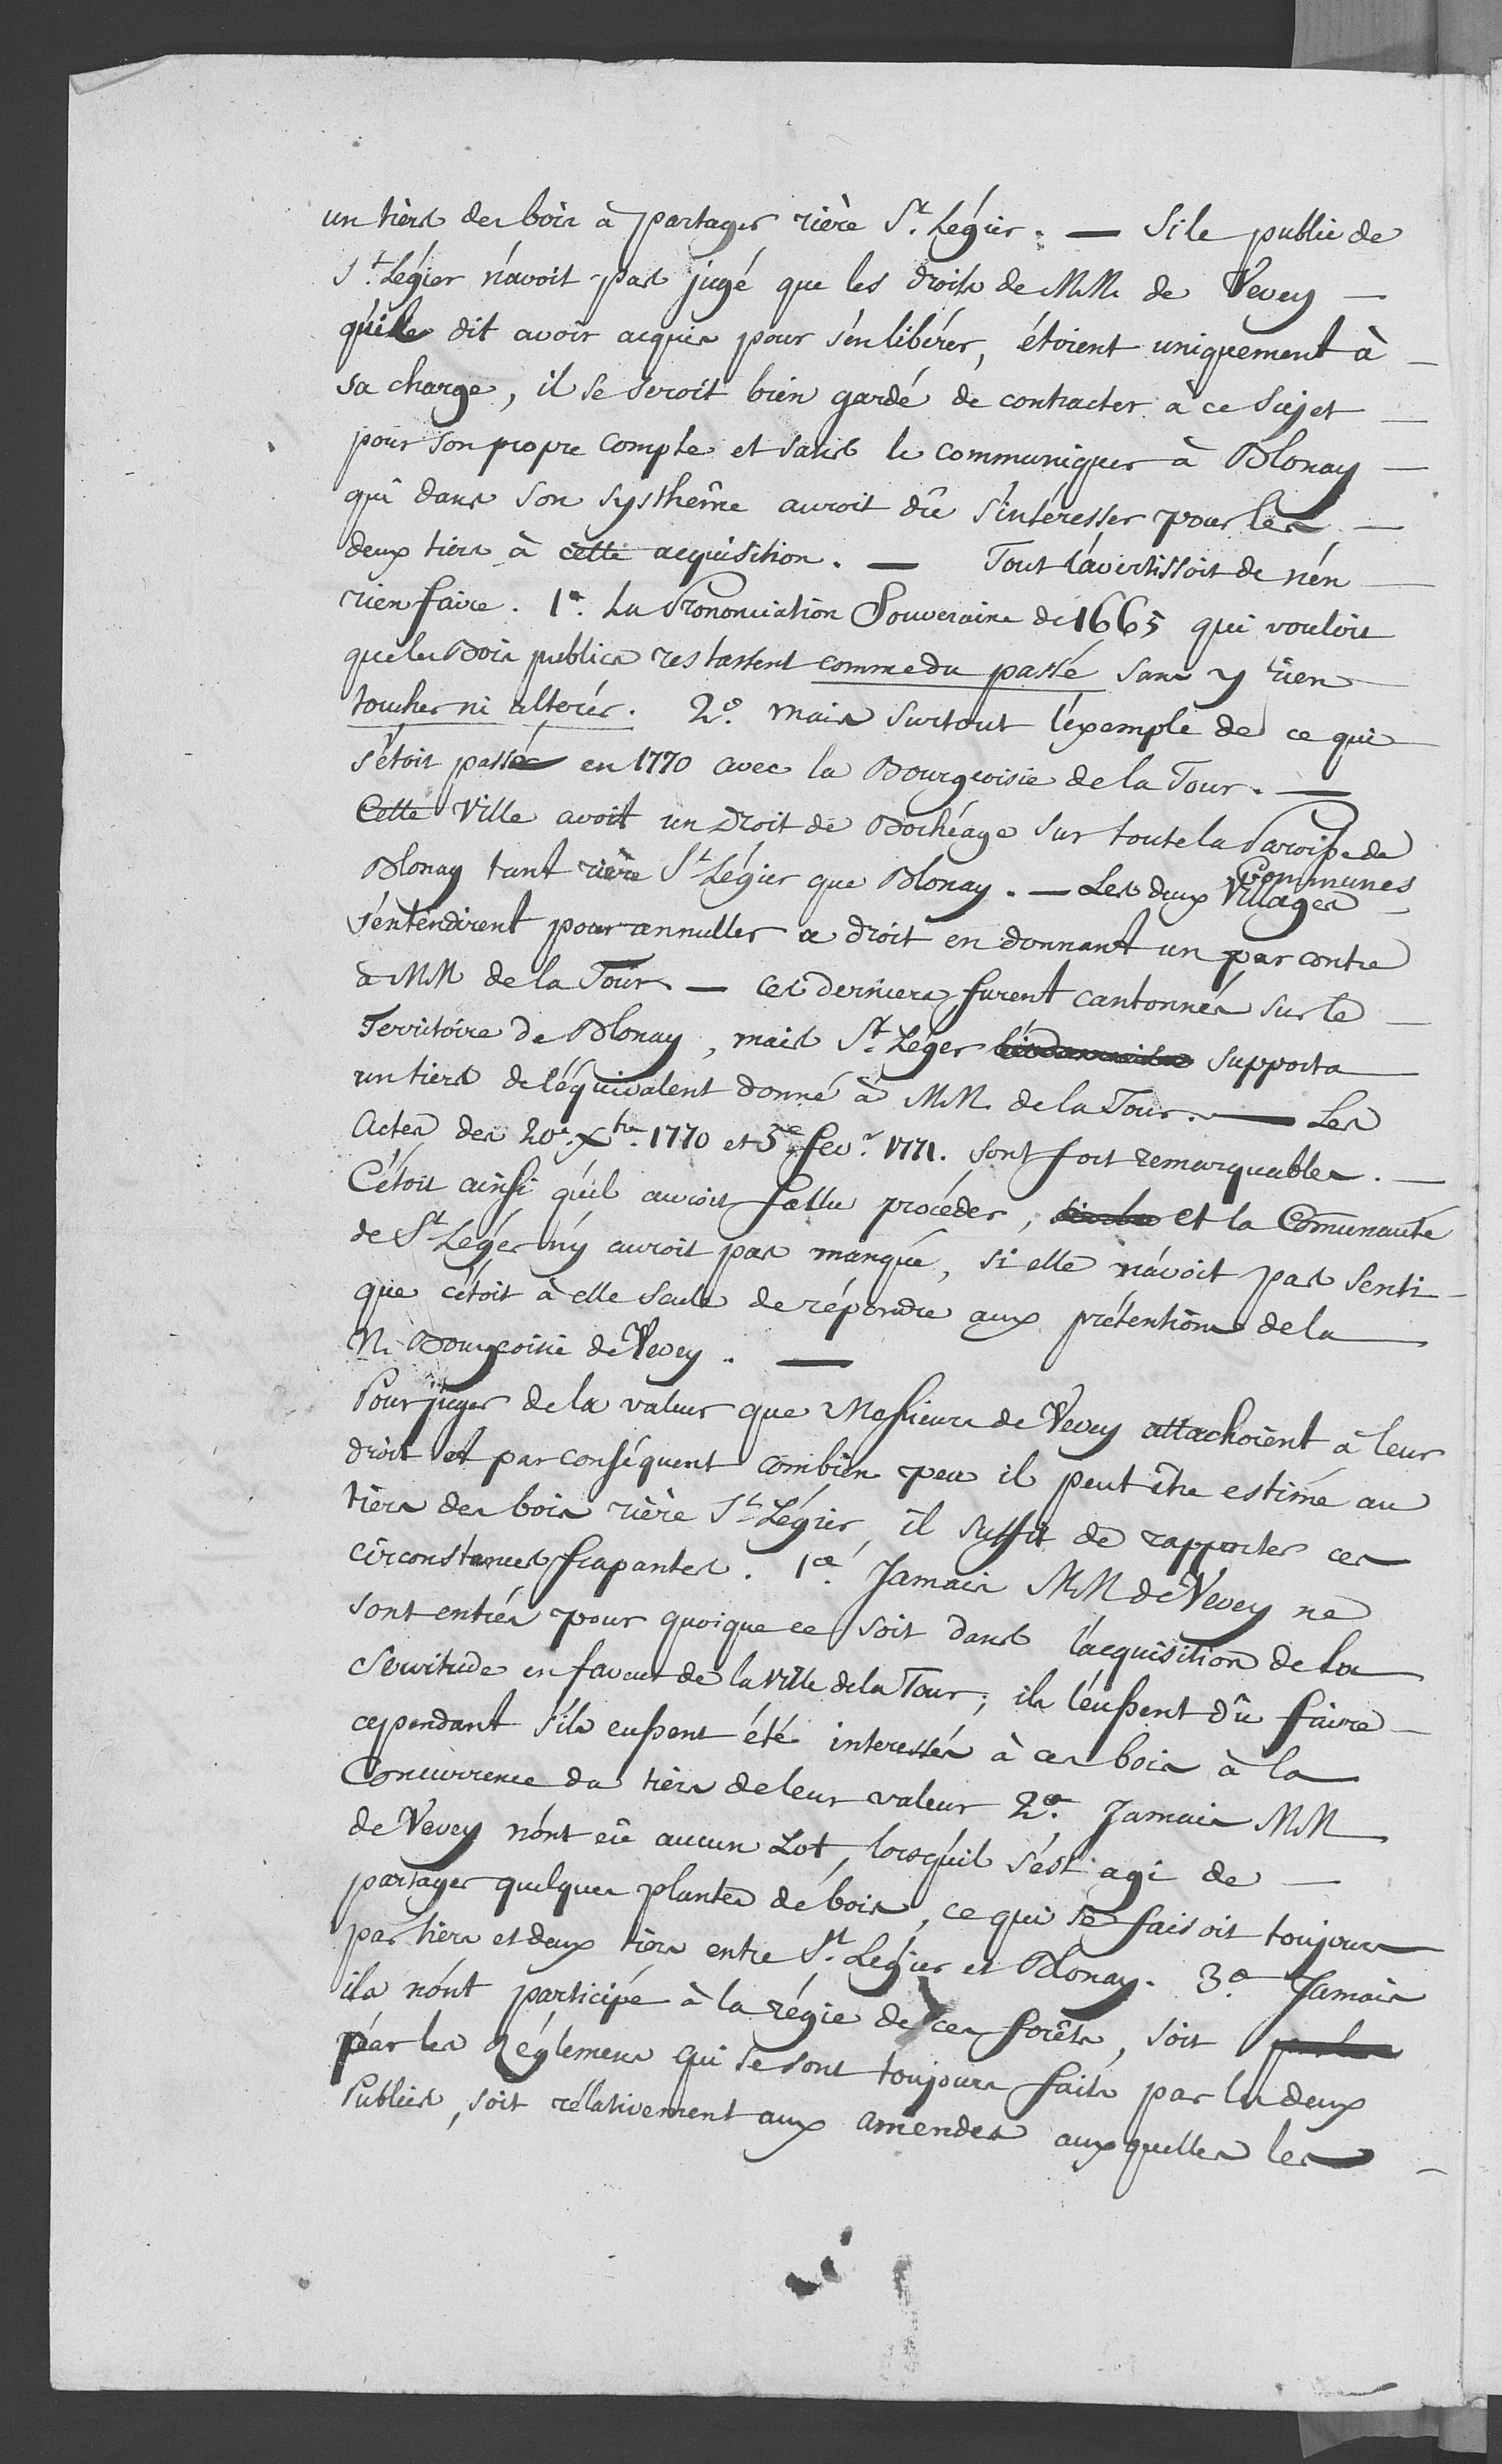 un tiers des bois à partager rière St. Légier. — Si le public de
St. Légier n'avoit pas jugé que les droits de MM. de Vevey —
qu'il dit avoir acquis pour s'en libérer, étoient uniquement à —
sa charge, il se seroit bien gardé de contracter à ce sujet —
pour son propre compte et sans le communiquer à Blonay —
qui dans son systhême auroit dû s'intéresser pour les —
deux tiers à cette acquisition. — Tout l'avertissoit de n'en —
rien faire. 1°. La Prononciation Souveraine de 1665 qui vouloit
que les Bois publics restassent comme du passé sans y rien
toucher ni alterér. 2°. mais surtout l'éxemple de ce qui
s'étoit passé en 1770 avec la Bourgeoisie de la Tour. —
Cette Ville avoit un Droit de Bochéage sur toute la Paroisse de
Blonay tant rière St. Légier que Blonay. — Les deux Villages Communes —
s'entendirent pour annuller ce droit en donnant un par contre
à MM de la Tour. — Ces derniers furent cantonnés sur le —
Territoire de Blonay, mais St. Léger supporta
un tiers de l'équivalent donné à MM. de la Tour. — Les
Actes des 20e. Xbre. 1770 et 5e. fevr. 1771. sont fort remarquables. —
C'étoit ainsi qu'il auroit fallu procéder, et la Comunauté
de St. Legér n'y auroit pas manqué, si elle n'avoit pas senti —
que c'étoit à elle seule de répondre aux prétentions de la
N. Bourgeoisie de Vevey. —
Pour juger de la valeur que Messieurs de Vevey attachoient à leur
droit et par conséquent combien peu il peut être estimé au
tiers des bois rière St. Légier, il suffit de rapporter ces
circonstances frapantes. 1°. Jamais MM de Vevey ne
sont entrés pour quoique ce soit dans l'acquisition de la
Servitude en faveur de la Ville de la Tour; ils l'eussent dû faire —
cependant s'ils eussent été interessés à ces bois à la
Concurrence du tiers de leur valeur 2°. Jamais MM
de Vevey n'ont eû aucun Lot, lorsqu'il s'est agi de —
partager quelques plantes de bois, ce qui se faisoit toujours
par tiers et deux tiers entre St. Légier et Blonay. 3°. Jamais
ils n'ont participé à la régie de ces forêts, soit
par les Réglemens qui se sont toujours faits par les deux
Publics, soit rélativement aux amendes aux quelles les —